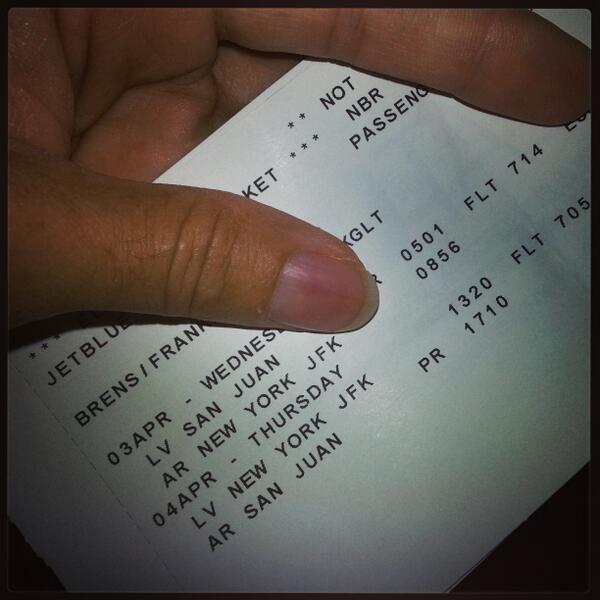 ** NOT
*** NBR
KET PASSENG
*** 
JETBLUE KGLT
BRENS/FRANK
03APR - WEDNES
LV SAN JUAN R 0501 FLT 714
AR NEW YORK JFK 0856
04APR - THURSDAY
LV NEW YORK JFK 1320 FLT 705
AR SAN JUAN PR 1710